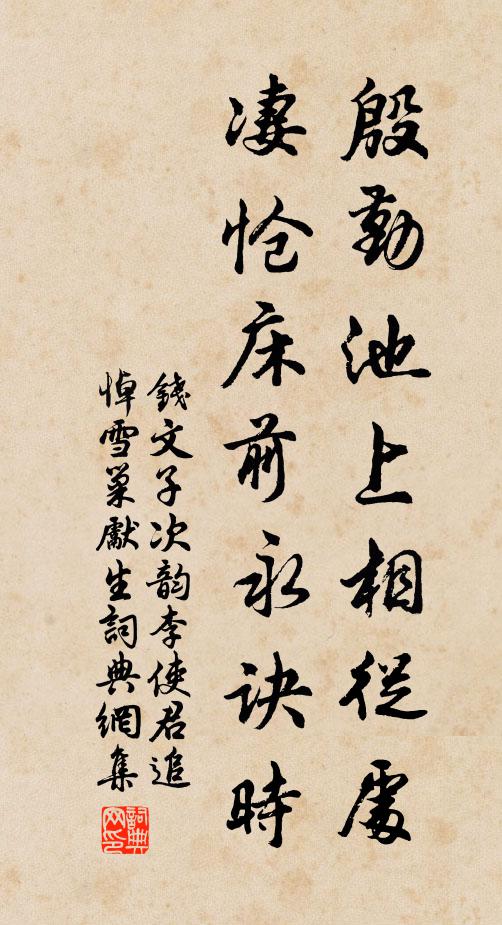 殷勤池上相從處
凄愴床前永訣時
錢文子次韵李使君追
悼雪巢獻生詞典網集
詞典网印